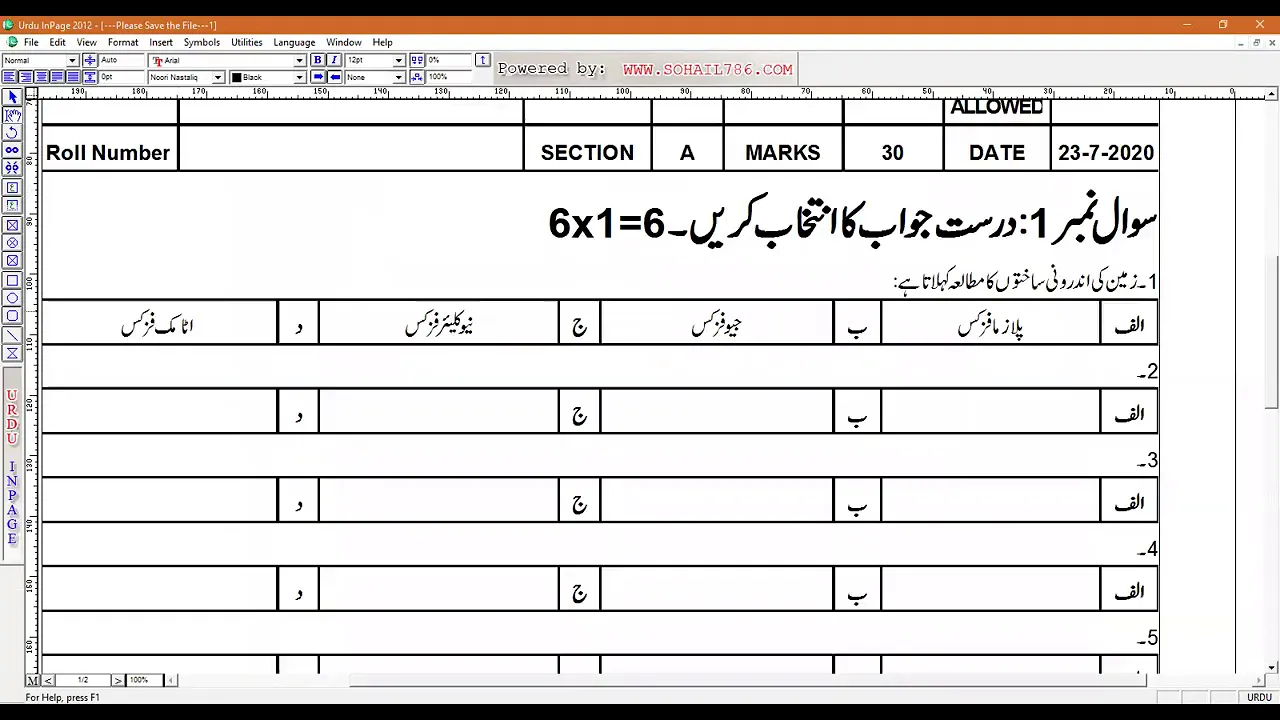 Urdu InPage 2012 - [---Please Save the File---1]
File Edit View Format Insert Symbols Utilities Language Window Help
Normal Auto Arial B I 12pt 0%
0pt Noori Nastaliq Black None 100%
Powered by: WWW.SOHAIL786.COM
190 180 170 160 150 140 130 120 110 100 90 80 70 60 50 40 30 20 10 0
ALLOWED
Roll Number SECTION A MARKS 30 DATE 23-7-2020
سوال نمبر 1: درست جواب کا انتخاب کریں۔ 6x1=6
1۔ زمین کی اندرونی ساختوں کا مطالعہ کہلاتا ہے:
الف پلازما فزکس ب جیو فزکس ج نیوکلیئر فزکس د اٹامک فزکس
2۔
الف ب ج د
3۔
الف ب ج د
4۔
الف ب ج د
5۔
URDU INPAGE
M < 1/2 > 100%
For Help, press F1 URDU